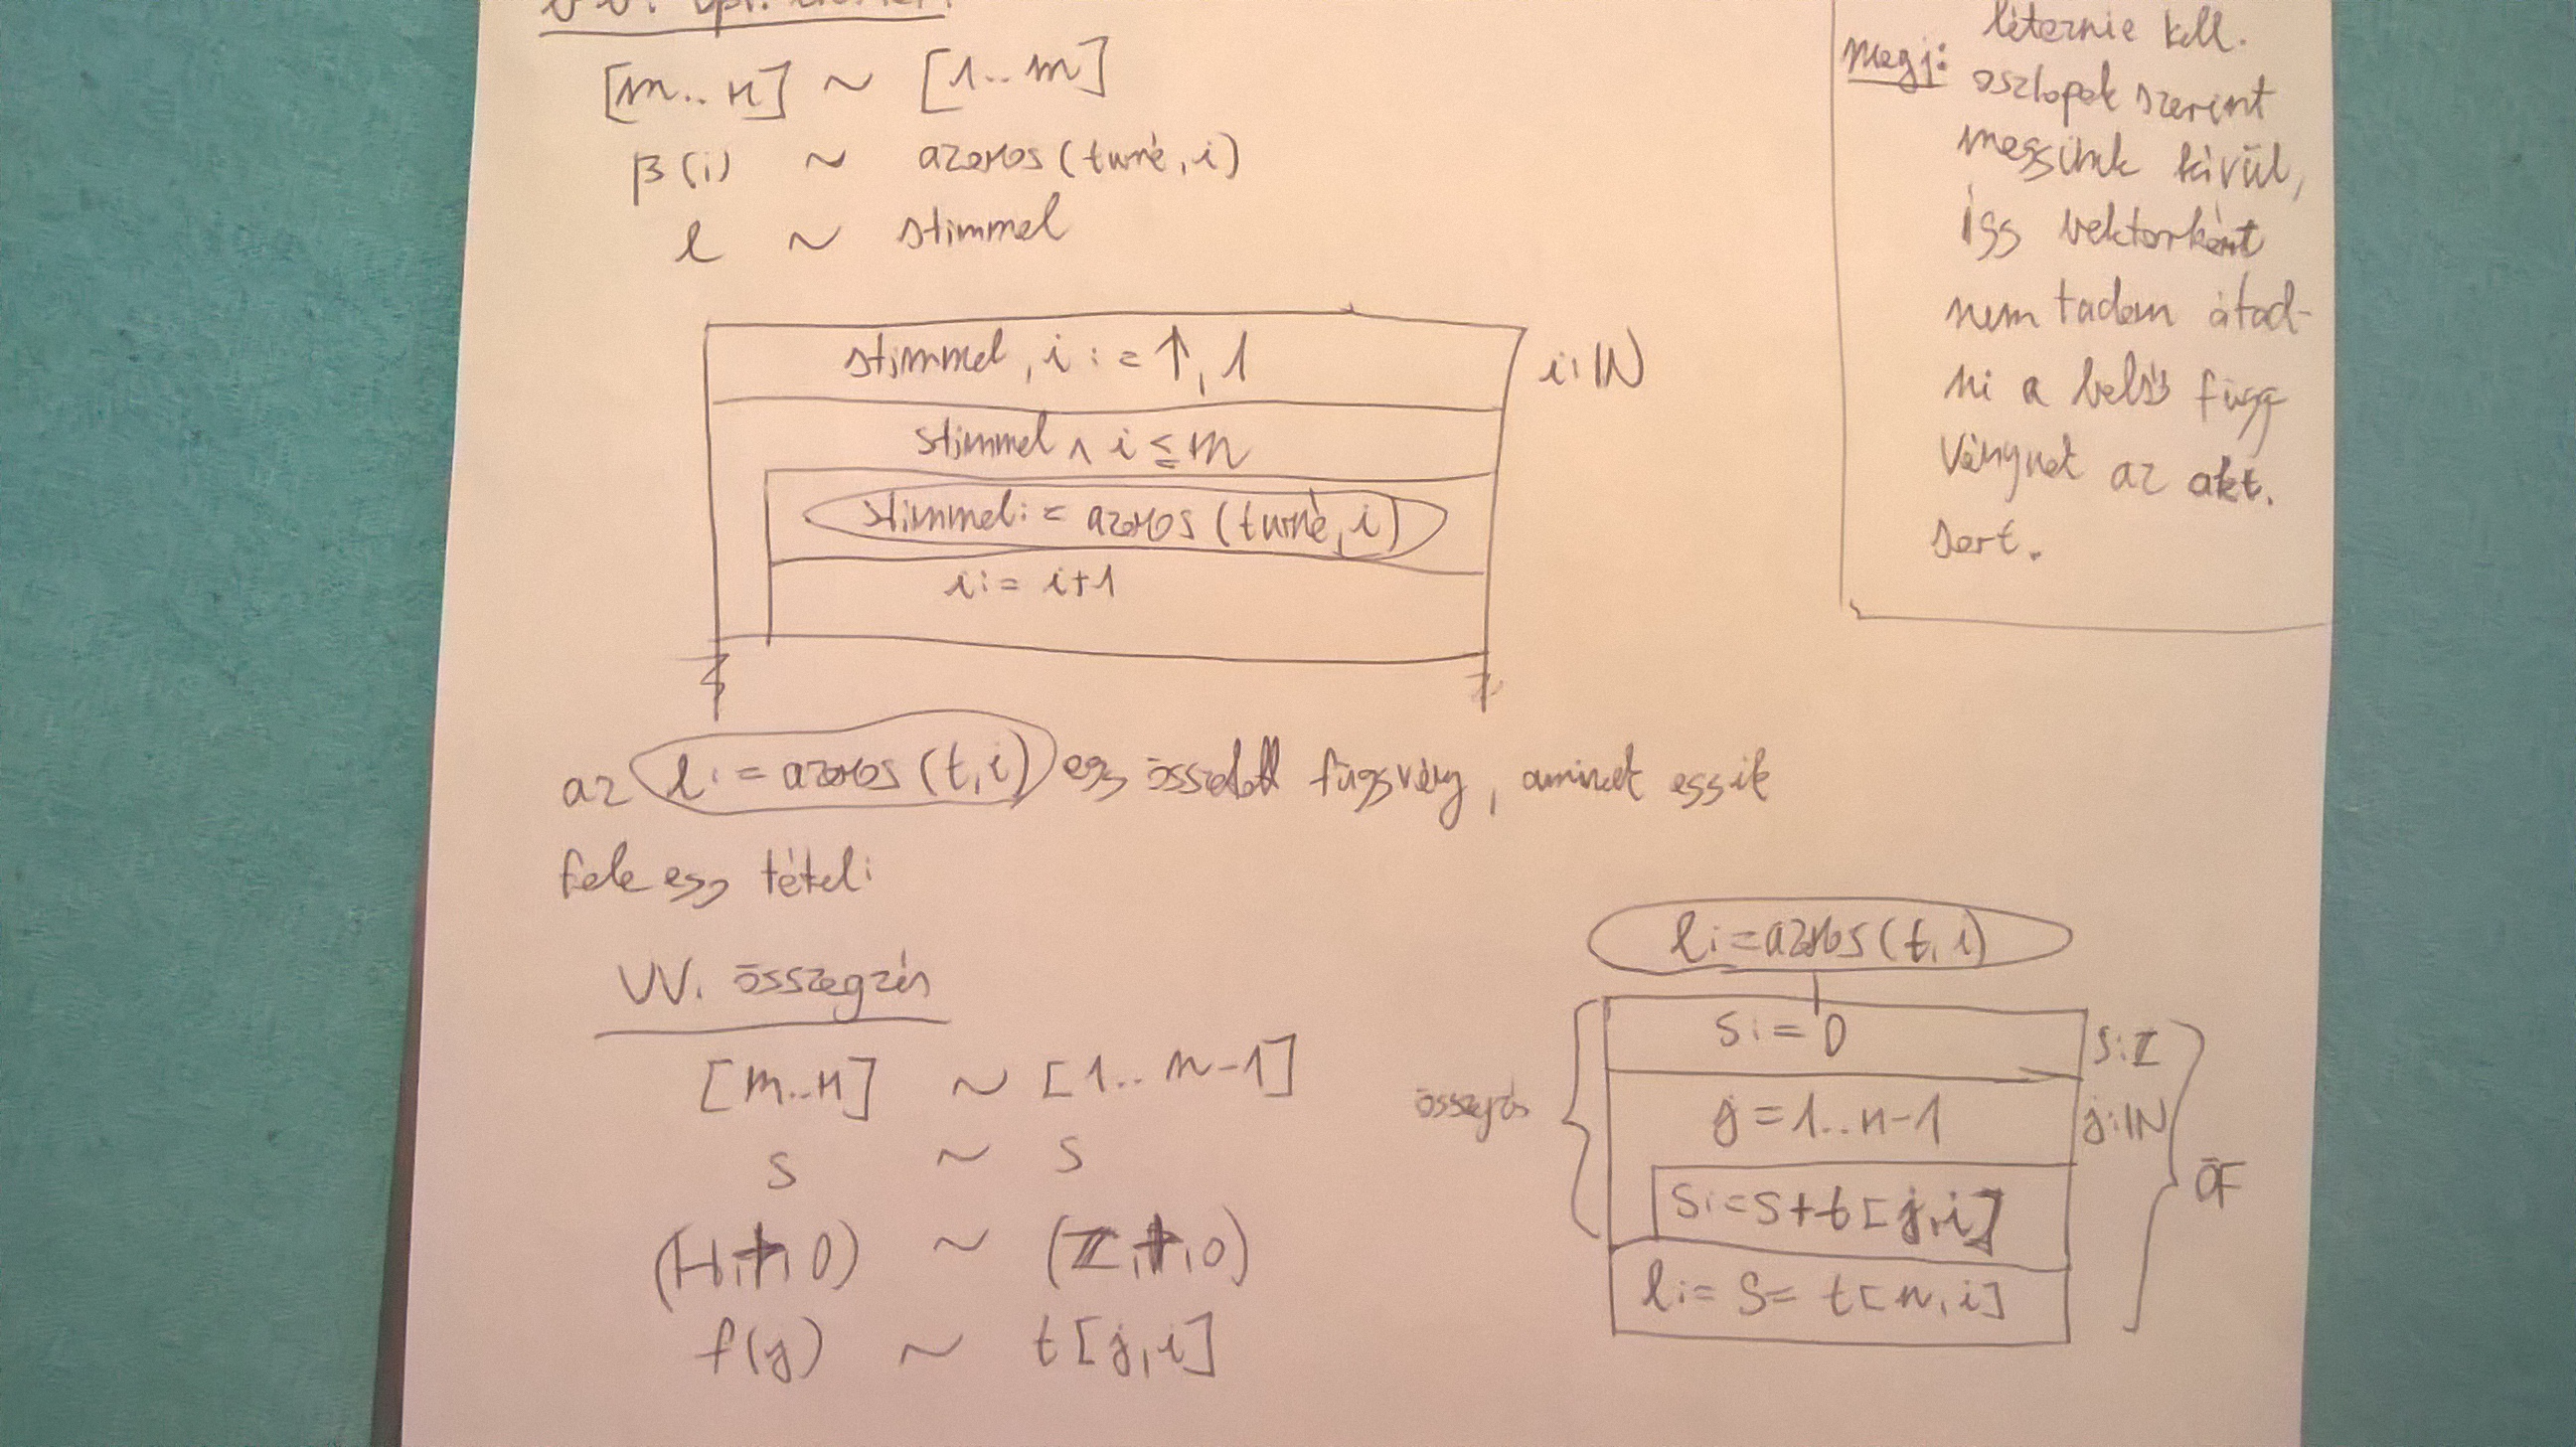 [m..n] ~ [1..m]
β(i) ~ azonos(turné,i)
l ~ stimmel
stimmel, i := ↑, 1
i:ℕ
stimmel ∧ i ≤ m
stimmel := azonos(turné,i)
i := i+1
léteznie kell.
Megj: oszlopok szerint
megyünk kívül,
így vektorként
nem tudom átad-
ni a belső függ
vénynek az akt.
sort.
az l := azonos(t,i) egy összetett függvény, aminek egyik
fele egy tétel:
VV. összegzés
[m..n] ~ [1..n-1]
s ~ s
(H,+,0) ~ (ℤ,+,0)
f(j) ~ t[j,i]
l := azonos(t,i)
összegzés
s := 0
s:ℤ
j = 1..n-1
j:ℕ
s := s+t[j,i]
ÖF
l := s = t[n,i]